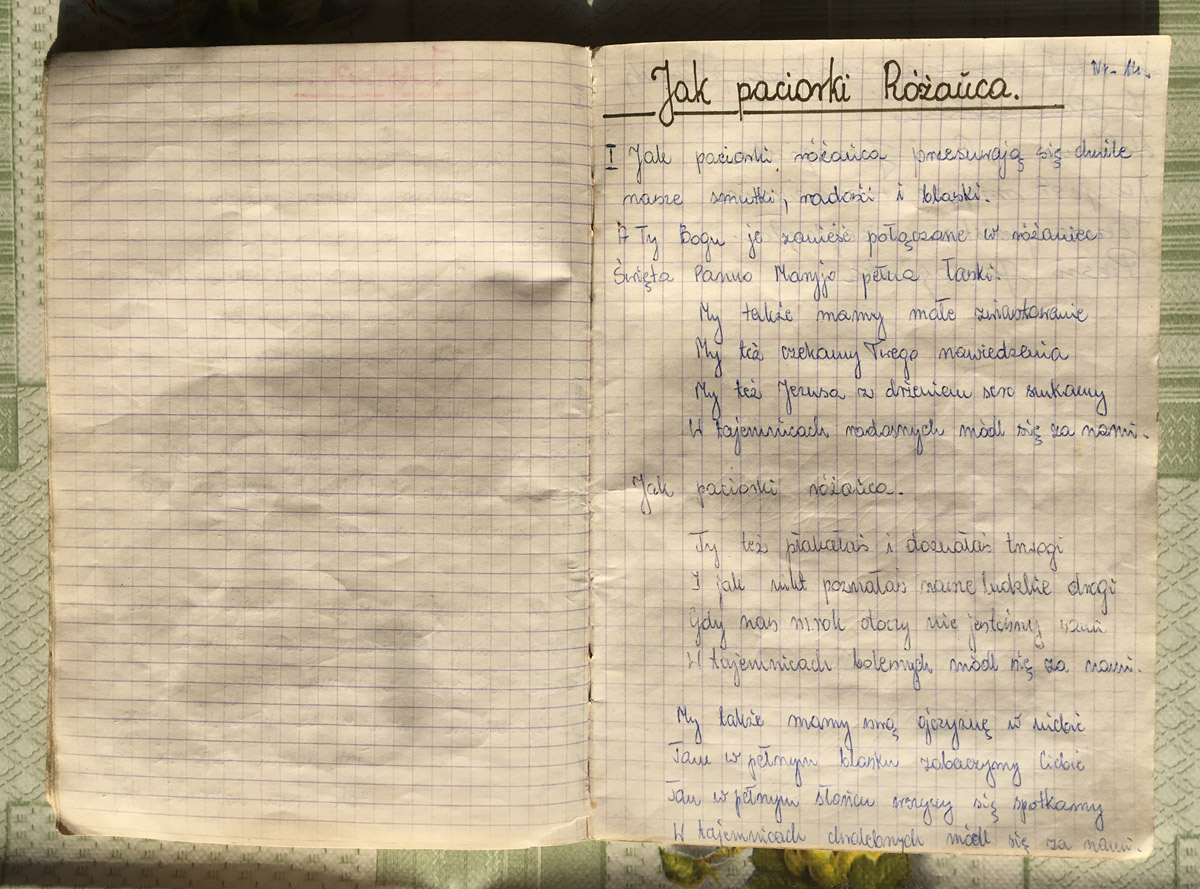 Nr. 14.
Jak paciorki Różańca.
I Jak paciorki różańca przesuwają się chwile
nasze smutki, radości i blaski.
A Ty Bogu je zanieść połączone w różaniec
Święta Panno Maryjo pełna łaski.
My także mamy małe zwiastowanie
My też czekamy Twego nawiedzenia
My też Jezusa z drżeniem serc szukamy
W tajemnicach radosnych módl się za nami.
Jak paciorki różańca.
Ty też płakałaś i doznałaś trwogi
I jak nikt poznałaś nasze ludzkie drogi
Gdy nas mrok otoczy nie jesteśmy sami
W tajemnicach bolesnych módl się za nami.
My także mamy swą ojczyznę w niebie
Tam w pełnym blasku zobaczymy Ciebie
Tam w pełnym słońcu wszyscy się spotkamy
W tajemnicach chwalebnych módl się za nami.